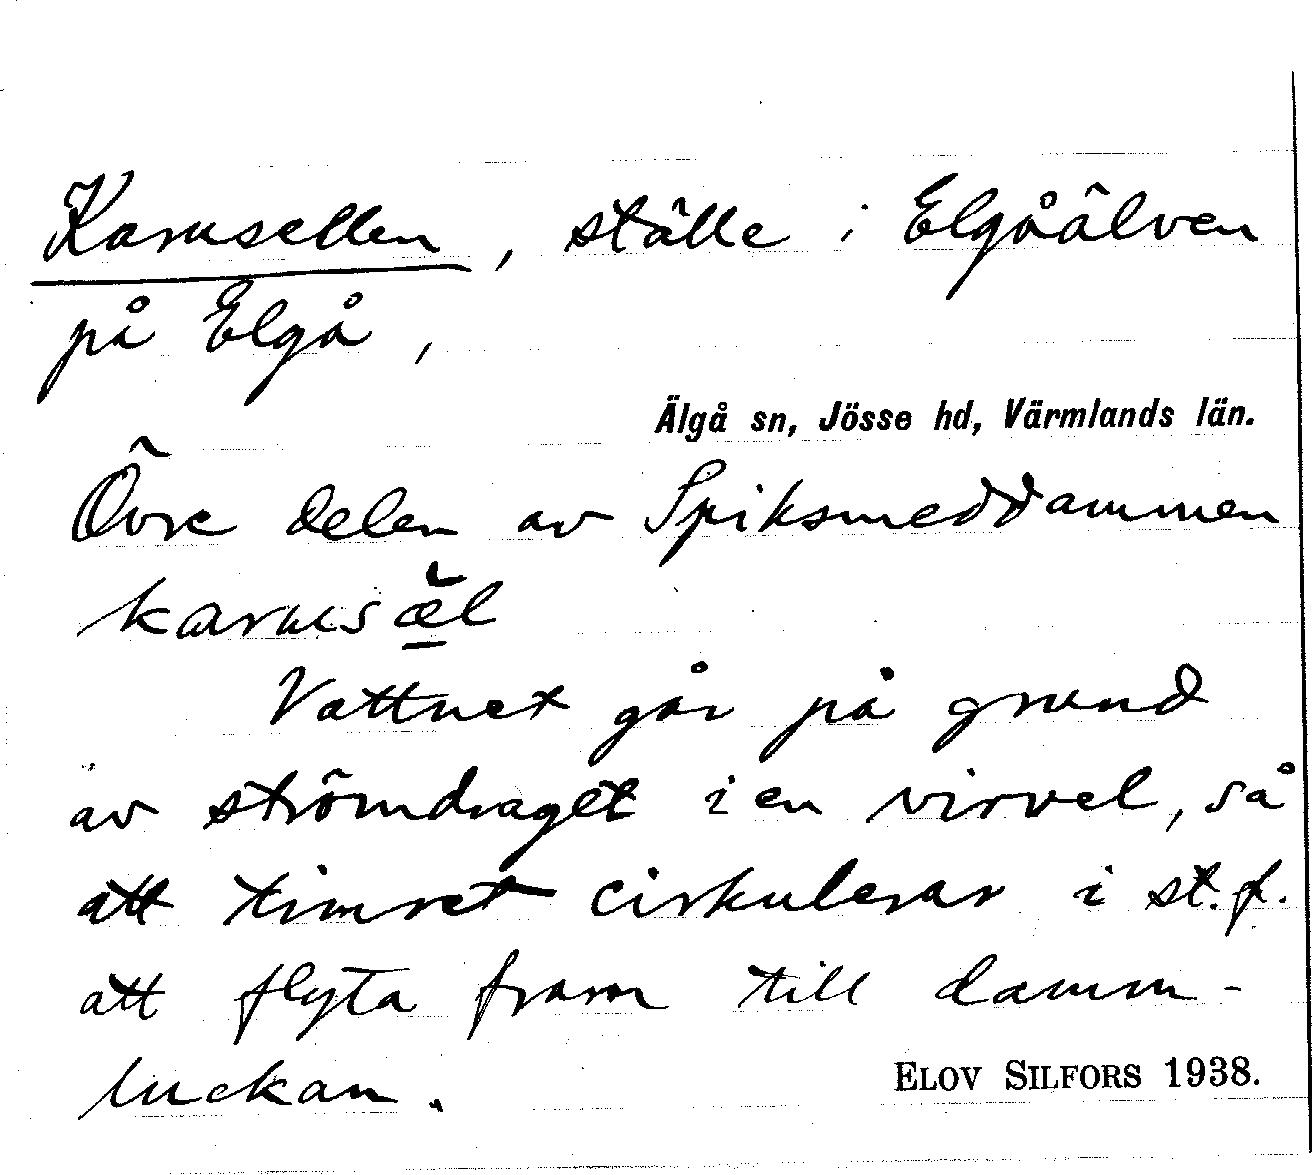 Karusellen, ställe i Elgåälven
på Elgå,
Älgå sn, Jösse hd, Värmlands län.
Övre delen av Spiksmeddammen
karusæ̲̆l
Vattnet går på grund
av strömdraget i en virvel, så
att timret cirkulerar i st. f.
att flyta fram till damm-
luckan.
ELOV SILFORS 1938.